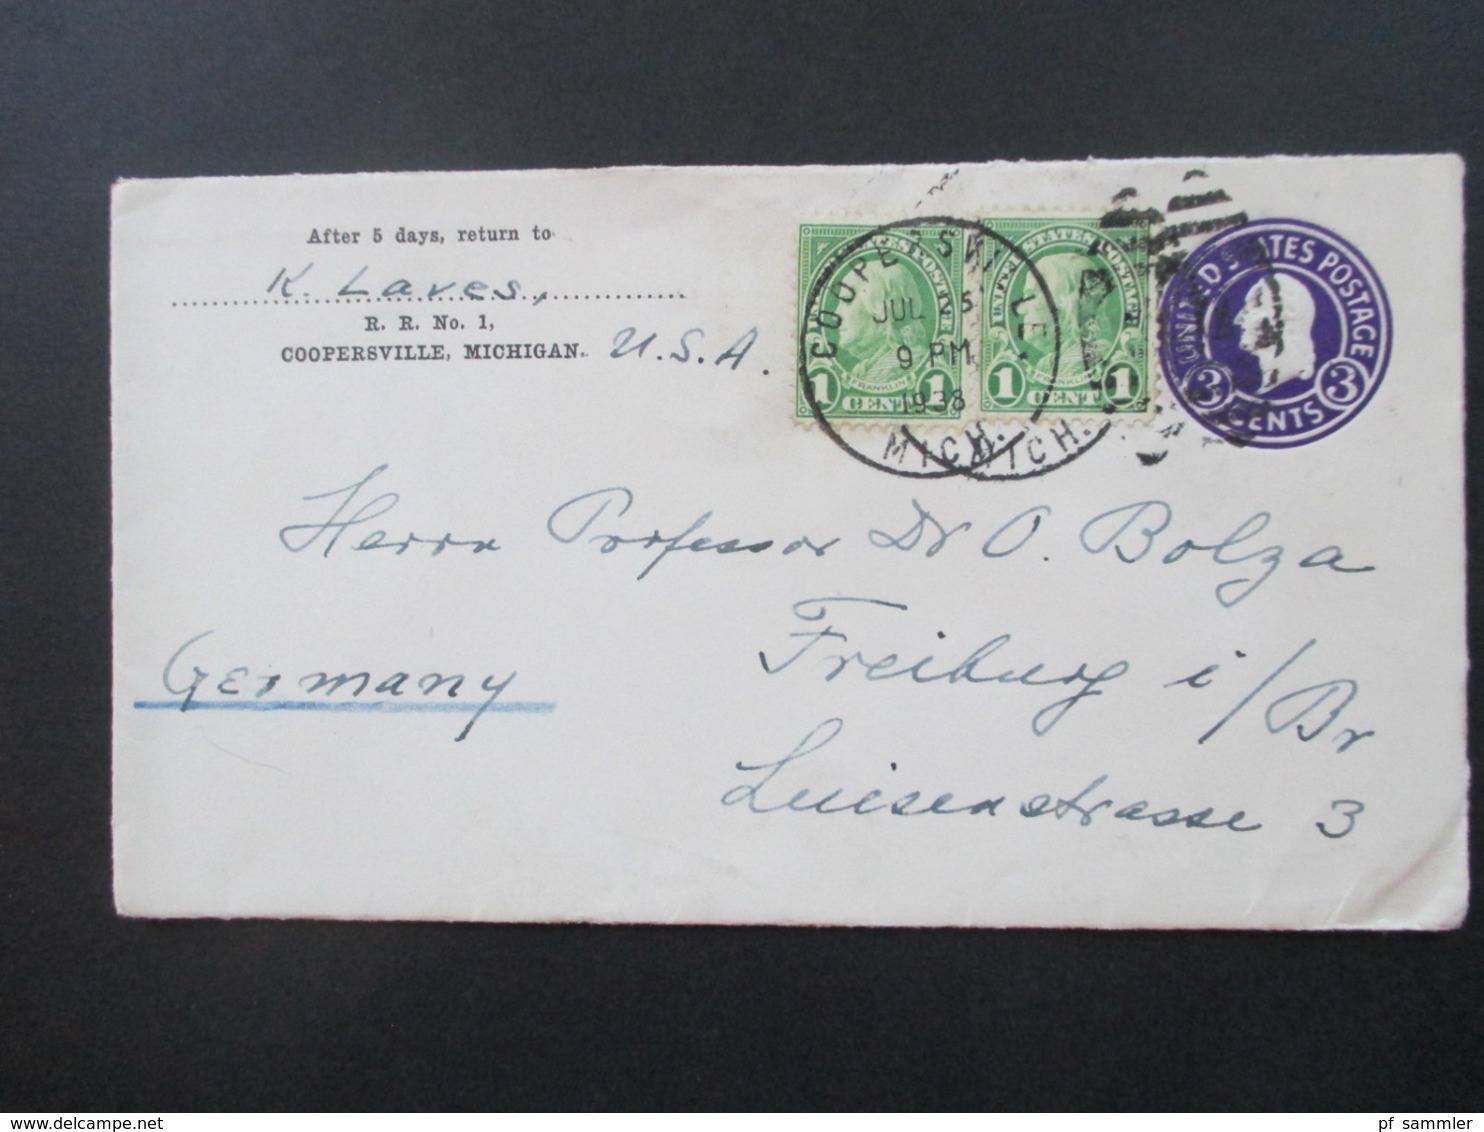 After 5 days, return to
K. Laves,
R. R. No. 1,
COOPERSVILLE, MICHIGAN.
U.S.A.
UNITED STATES POSTAGE
FRANKLIN
1 CENT 1
UNITED STATES POSTAGE
FRANKLIN
1 CENT 1
COOPERSVILLE
JUL 5
9 PM
1938
MICH.
MICH.
UNITED STATES POSTAGE
3 CENTS 3
Herrn Professor Dr O. Bolza
Freiburg i/Br
Luisenstrasse 3
Germany
delcampe.net
pf_sammler